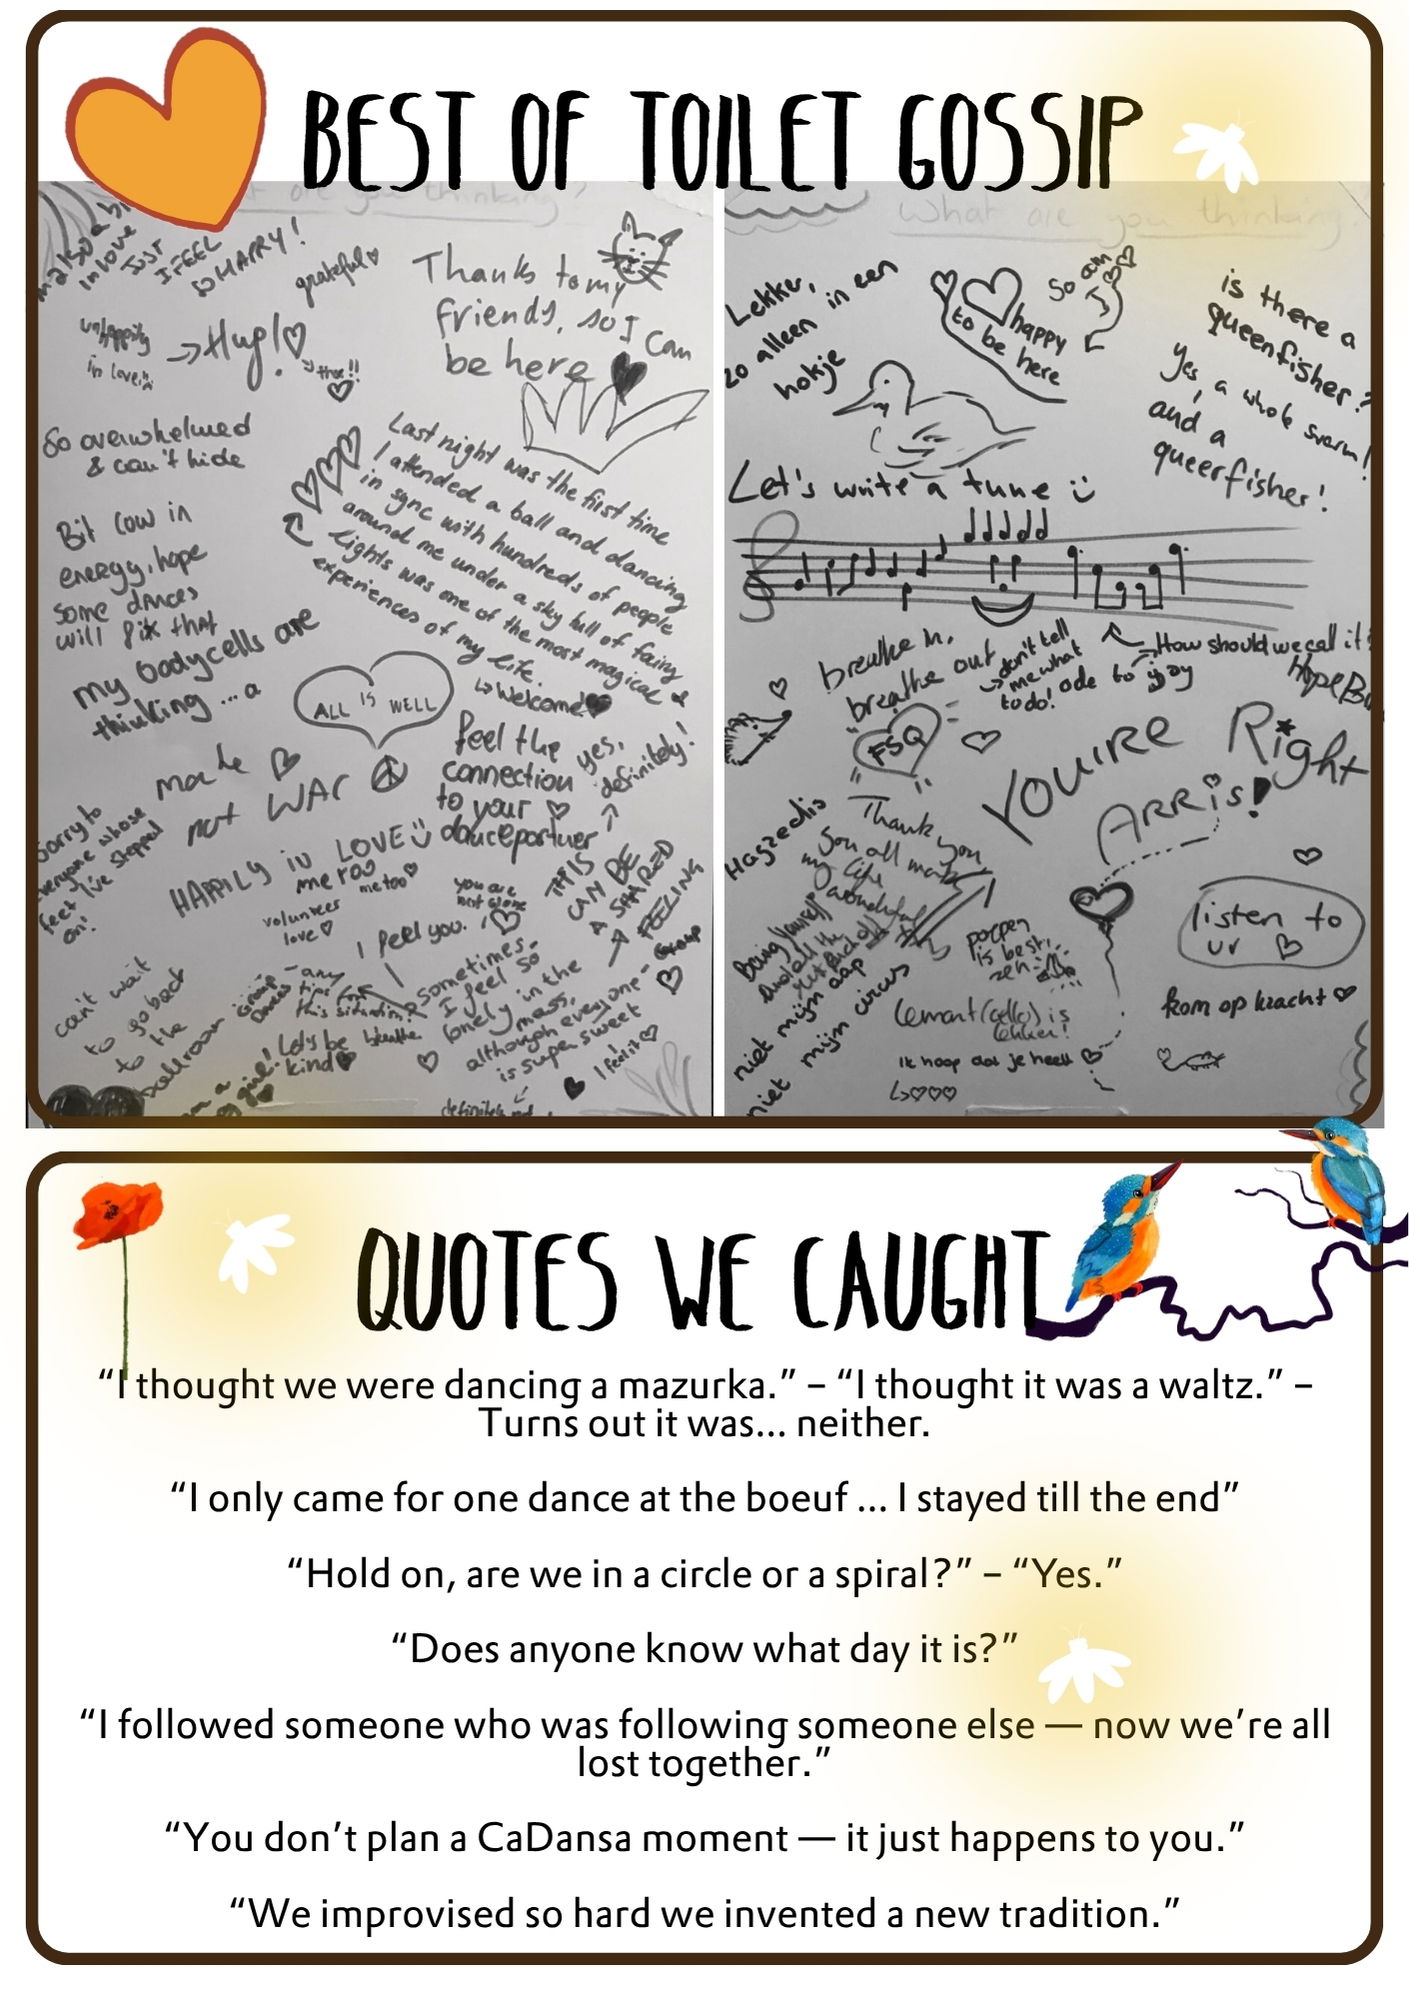 BEST OF TOILET GOSSIP
are you thinking?
in love
JUST
I FEEL
SO HAPPY!
grateful
unhappily
in love
→ Hug!
Thanks to my
friends, so I can
be here
So overwhelmed
& can't hide
Last night was the first time
I attended a ball and dancing
in sync with hundreds of people
around me under a sky full of fairy
lights was one of the most magical
experiences of my life.
↳ Welcome!
Bit low in
energy, hope
some dances
will fix that
my bodycells are
thinking ... a
ALL IS WELL
make
not WAR
feel the
connection
to your
dancepartner
yes,
definitely!
Sorry to
everyone whose
feet I've stepped
on!
HAPPILY in LOVE
me too
me too
volunteer
love
you are
not alone
THIS
CAN BE
A SHARED
FEELING
I feel you.
can't wait
to go back
to the
ballroom
Group
Dances
- any
tips for
this situation?
sometimes
I feel so
lonely in the
mess,
although everyone
is super sweet
Group
Let's be
kind
breathe
I feel it
definitely not
What are you thinking?
Lekker,
zo alleen in een
hokje
happy
to be here
So am
I
is there a
queenfisher?
Yes, a whole swarm!
and a
queerfisher!
Let's write a tune
How should we call it?
ode to joy
breathe in,
breathe out
don't tell
me what
to do!
FSQ
YOU'RE Right
ARRIS!
Hagzedis
Thank you
you all make
my life
wonderful
Being yourself
niet mijn aap
niet mijn circus
poepen
is best
zen
Lemont (cello) is
lekker!
Ik hoop dat je heelt
listen to
ur
kom op kracht
QUOTES WE CAUGHT
“I thought we were dancing a mazurka.” – “I thought it was a waltz.” –
Turns out it was... neither.
“I only came for one dance at the boeuf ... I stayed till the end”
“Hold on, are we in a circle or a spiral?” – “Yes.”
“Does anyone know what day it is?”
“I followed someone who was following someone else — now we’re all
lost together.”
“You don’t plan a CaDansa moment — it just happens to you.”
“We improvised so hard we invented a new tradition.”